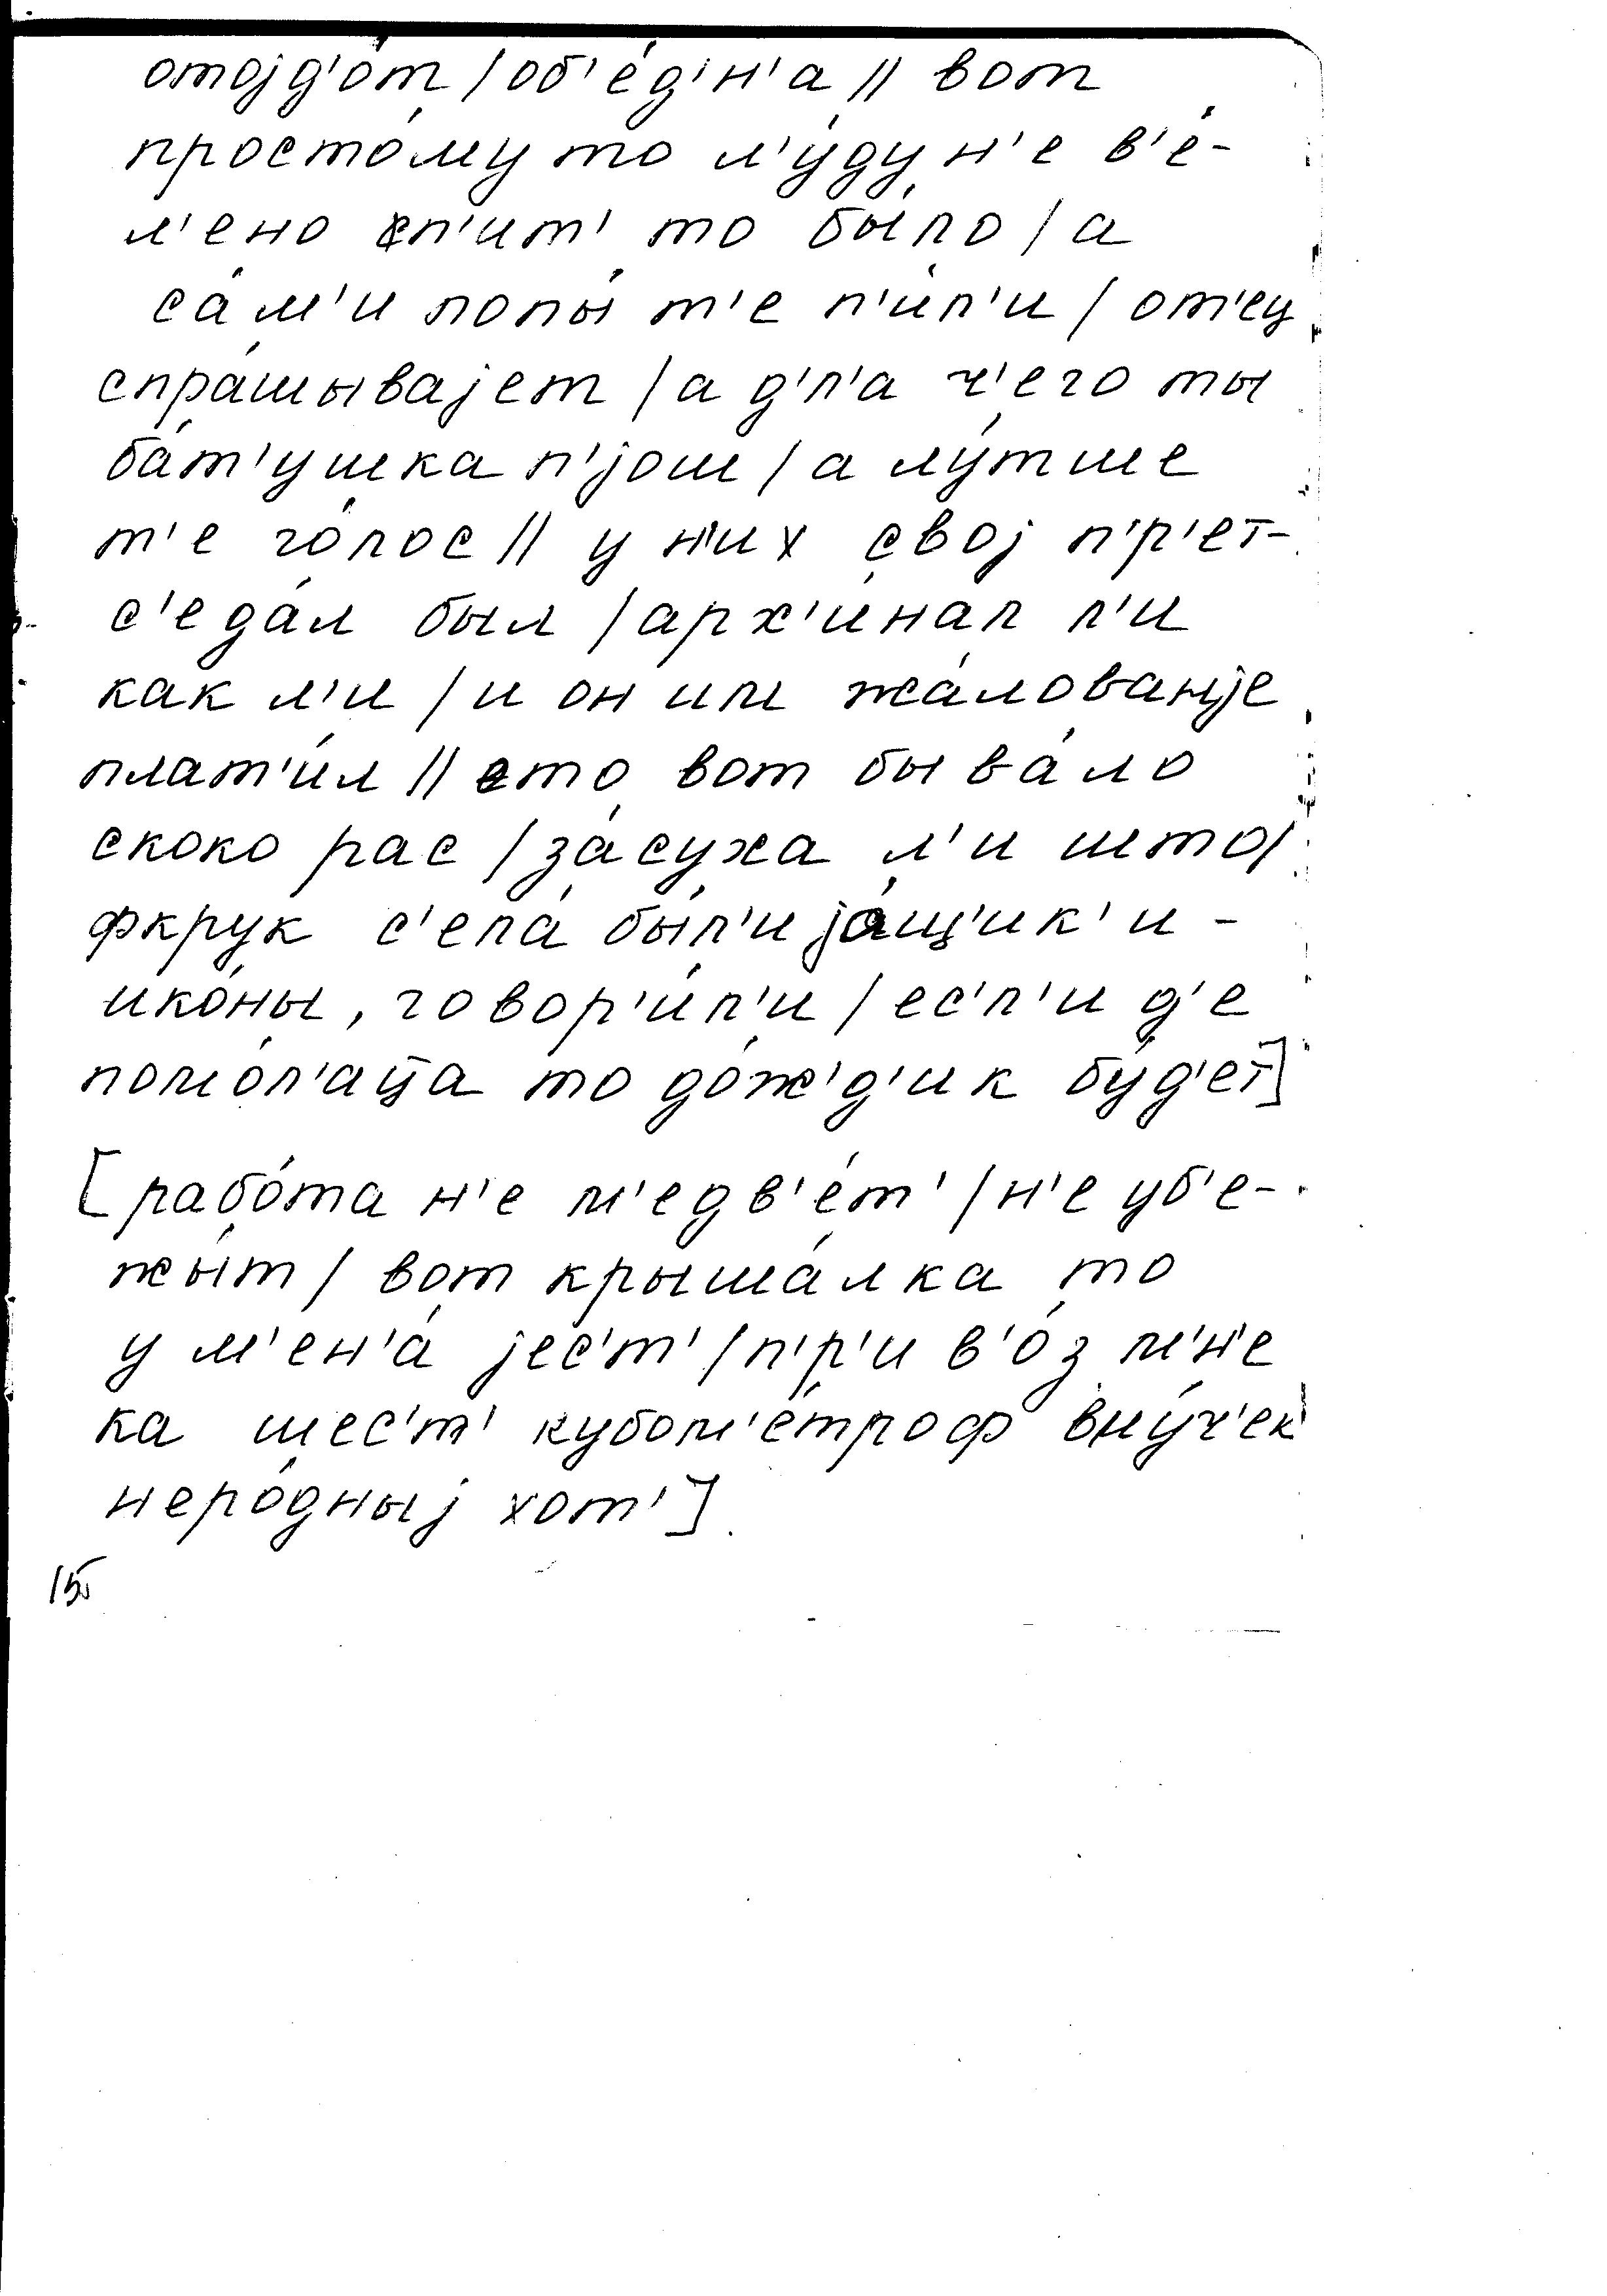 отојд'о́т / об'е́д'н'а // вот
просто́му то л'у́ду н'е в'е́-
л'ено п'ит' то бы́ло / а
са́м'и попы́ т'е п'и́л'и / от'ец
спра́шывајет / а д'л'а ч'его ты
ба́т'ушка п'још / а лу́тше
т'е го́лос // у н'их свој п'р'ет-
с'еда́л был / арх'и́нал л'и
как л'и / и он им жа́лован'је
плат'и́л // ето вот быва́ло
скоко рас / за́суха л'и што /
фкрук с'ела́ бы́л'и ја́щ'ик'и -
ико́ны, говор'и́л'и / ес'л'и д'е
помо́л'аца то до́ж'д'ик бу́д'ет]
[рабо́та н'е м'едв'е́т' / н'е уб'е-
жы́т / вот крыша́лка то
у м'ен'а́ јес'т' / п'р'и в'о́з м'н'е
ка шес'т' кубом'е́троф вну́ч'ек
неро́дныј хот']
15